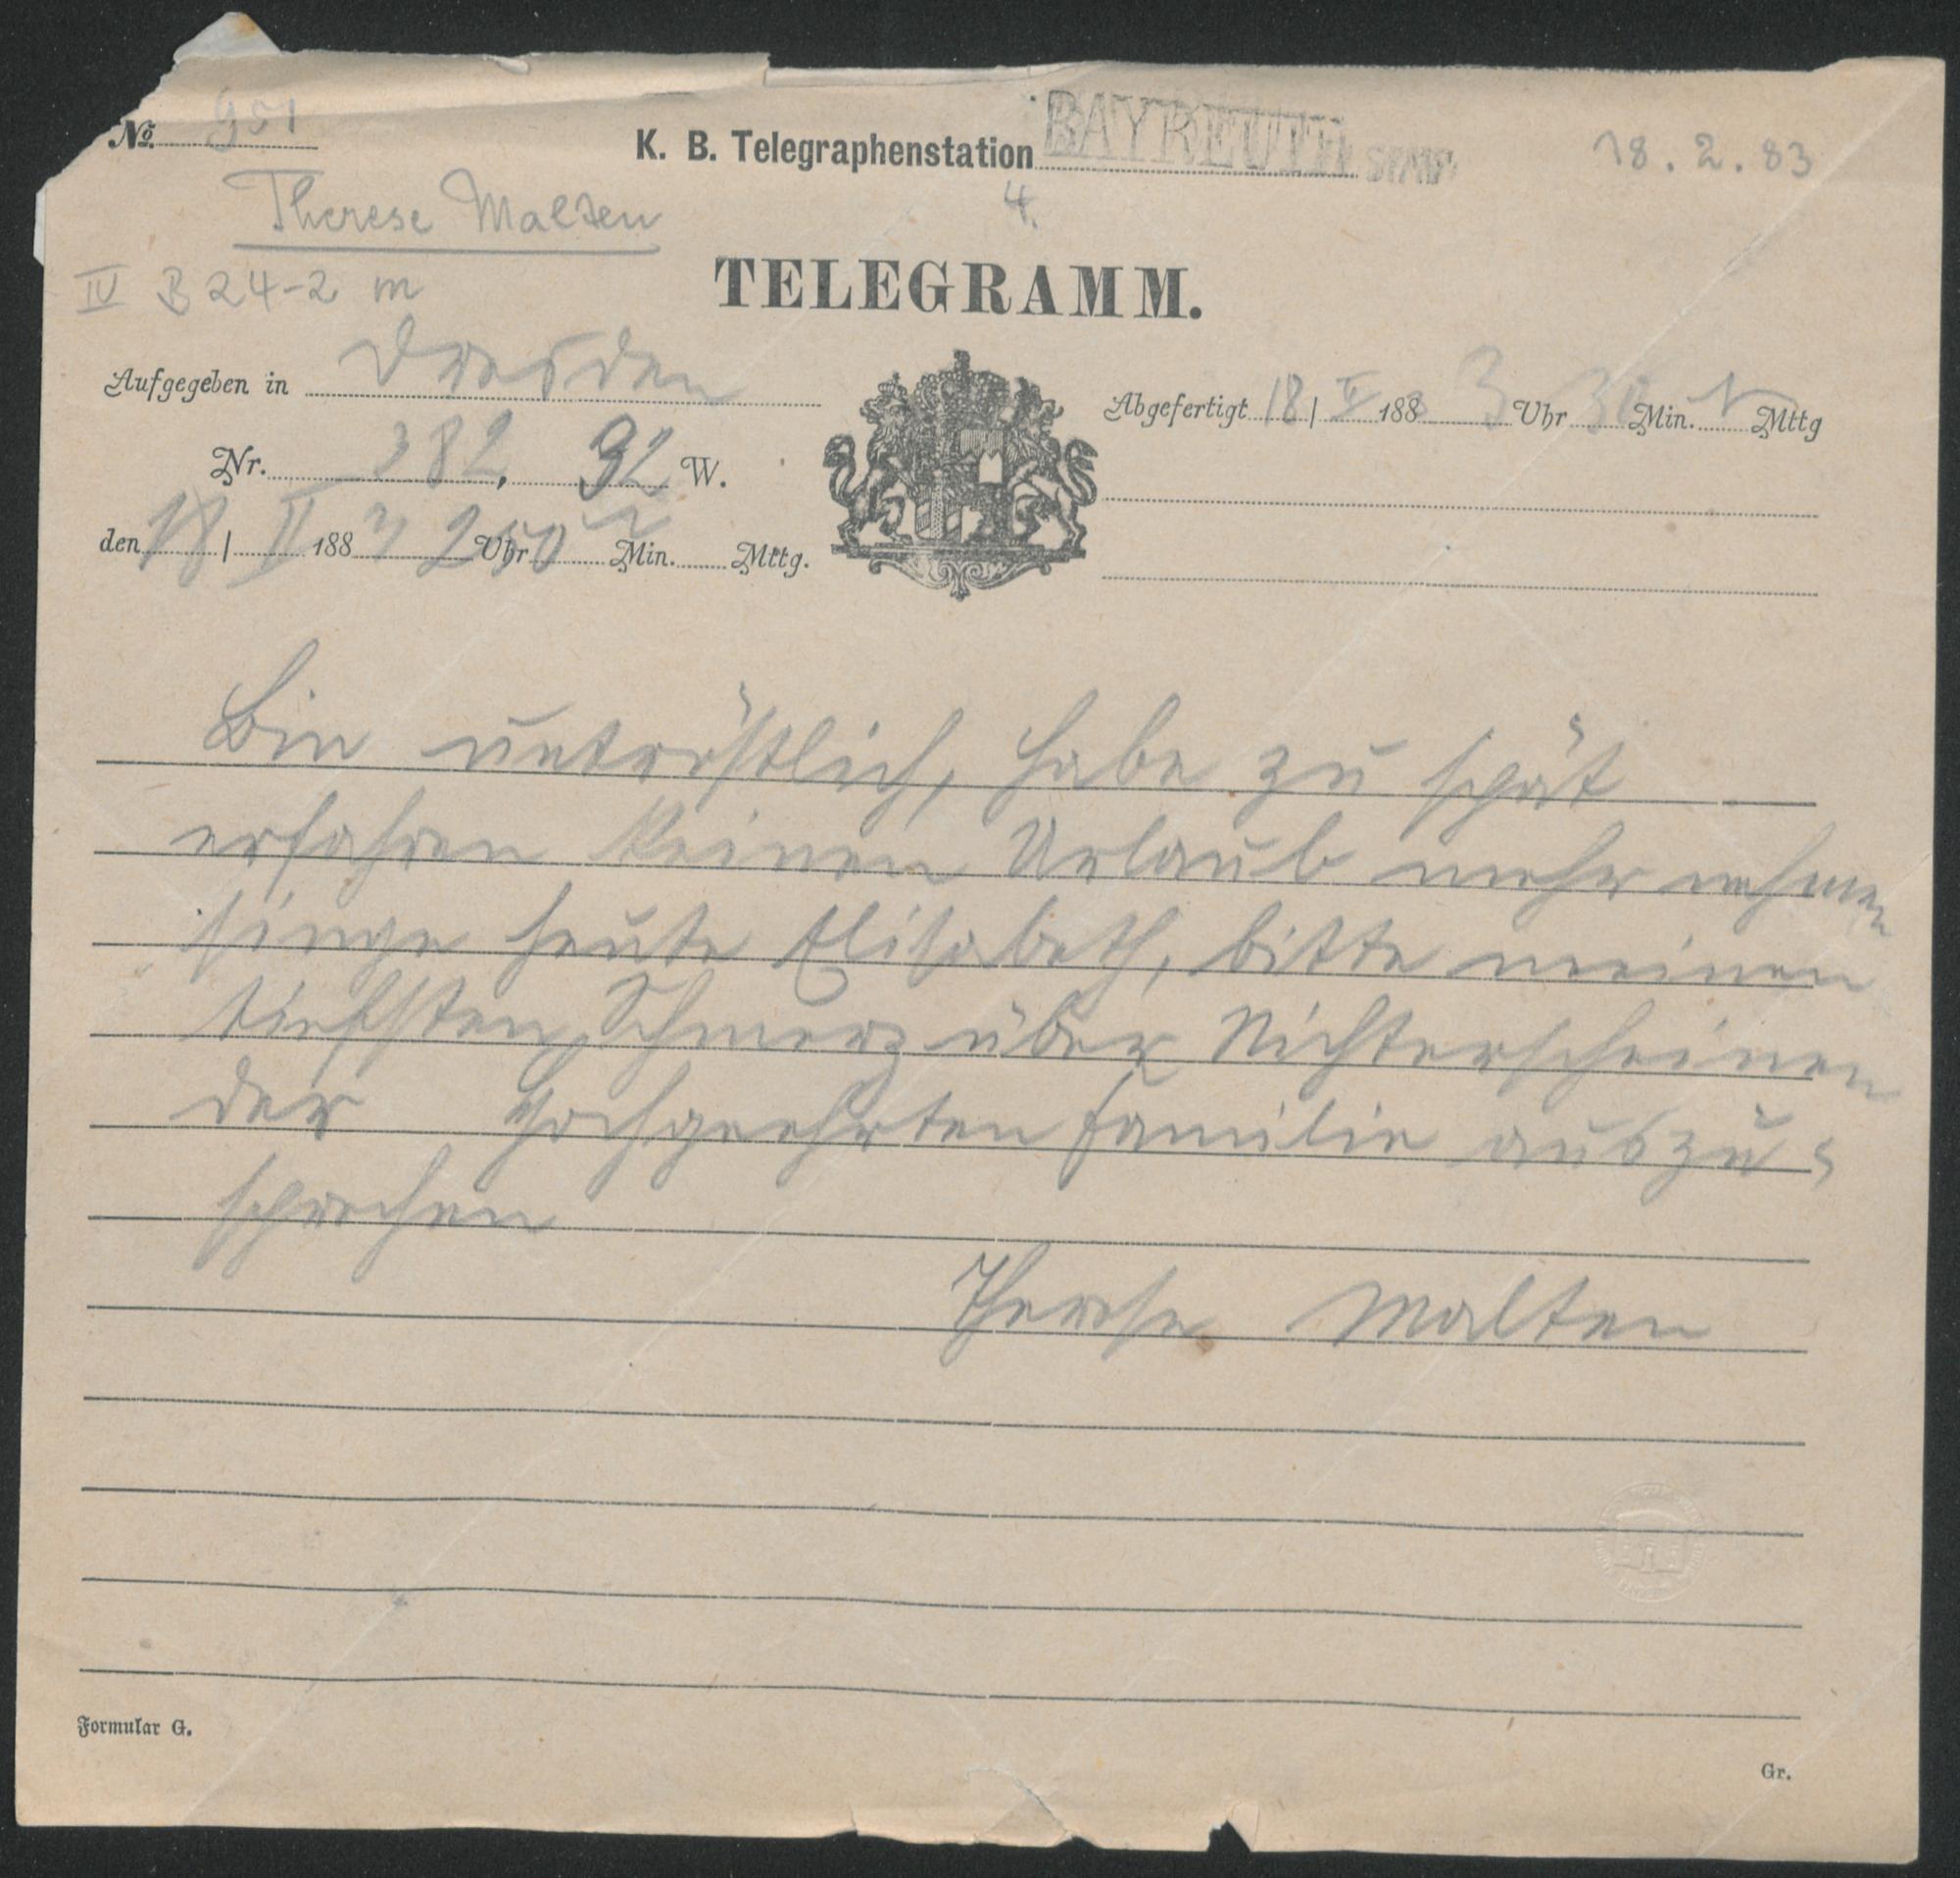 No. 951
K. B. Telegraphenstation BAYREUTH
18. 2. 83
Therese Malten
4.
IV B 24-2 m
TELEGRAMM.
Aufgegeben in Dresden
Abgefertigt 18 / II 1883 3 Uhr 30 Min. N Mttg
Nr. 382, 92 W.
den 18 / II 1883 2 Uhr 50 Min. Mttg.
Bin untröstlich, habe zu spät
erfahren keinen Urlaub mehr nehmen
singe heute Elisabeth, bitte meinen
tiefsten Schmerz über Nichterscheinen
der hochgeehrten Familie auszu=
sprechen
Therese Malten
Formular G.
Gr.